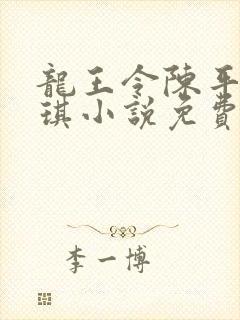 龍王令陳平
琪小說免費
李一博